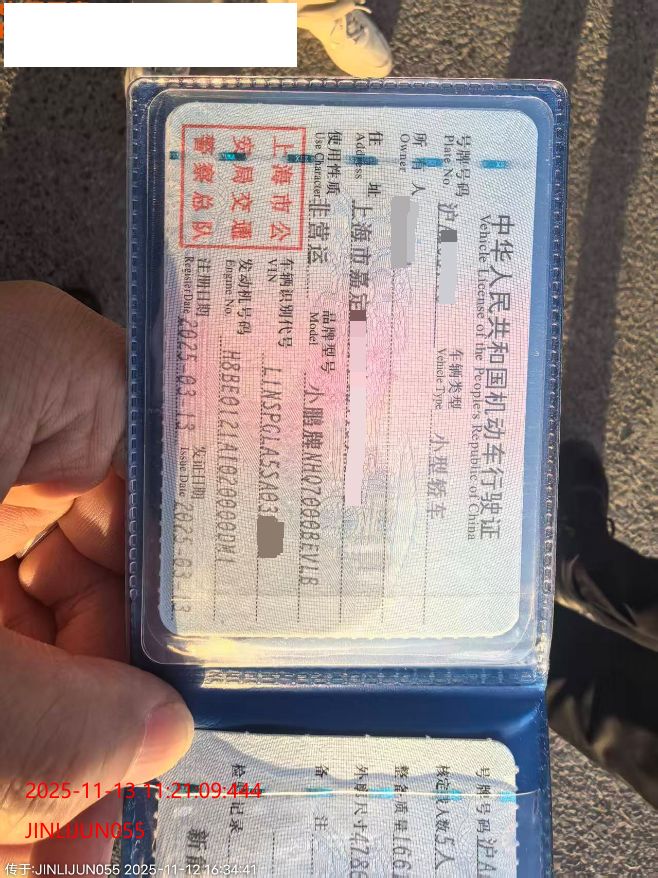 中华人民共和国机动车行驶证
Vehicle License of the People's Republic of China
号牌号码 沪A
Plate No.
车辆类型 小型轿车
Vehicle Type
所有人
Owner
住址 上海市嘉定
Address
使用性质 非营运
Use Character
品牌型号 小鹏牌NHQ7000BEV1B
Model
车辆识别代号 L1NSPGLA5SA03
VIN
发动机号码 H8BE0121A1020000DM1
Engine No.
注册日期 2025-03-13
Register Date
发证日期 2025-03-13
Issue Date
上海市公
安局交通
警察总队
号牌号码 沪A
核定载人数 5人
整备质量 166
外廓尺寸 478
备 注
检 记录
2025-11-13 11:21:09:444
JINLIJUN055
传于:JINLIJUN055 2025-11-12 16:34:41